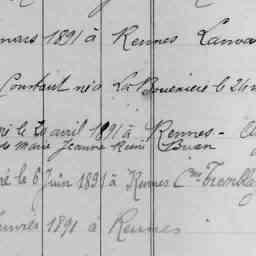 mars 1891 à Rennes
Constant né à La Bouëxière le 24
né le 20 avril 1891 à Rennes -
de Marie Jeanne René Buan
né le 6 Juin 1891 à Rennes Cne Tremblay
1891 à Rennes